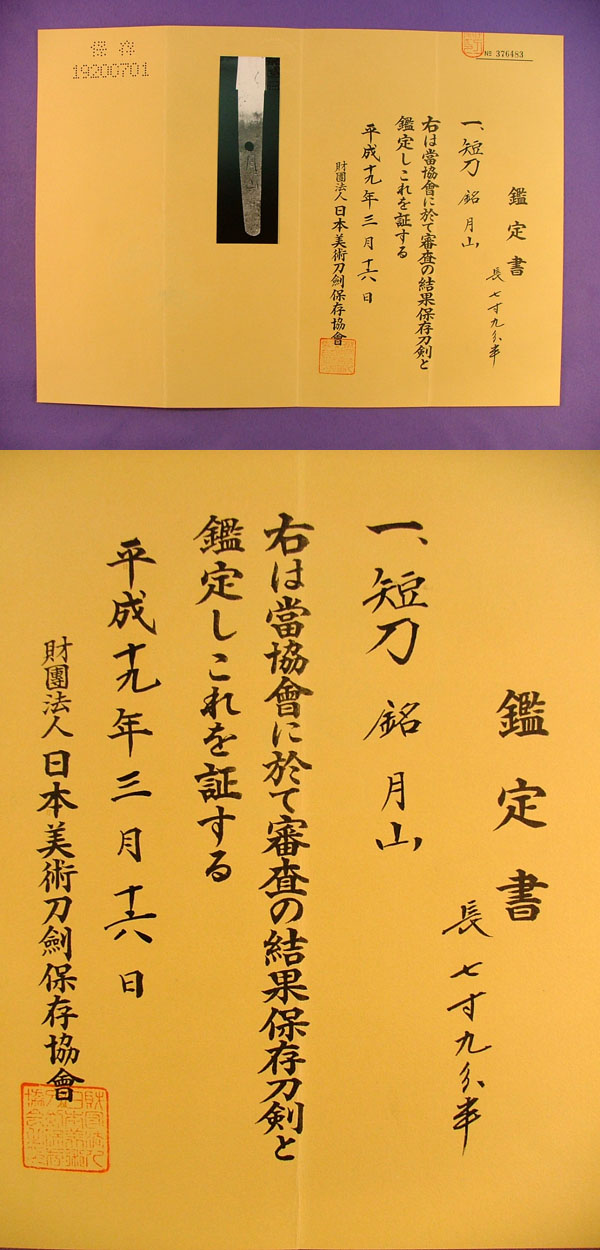 保存
19200701
№ 376483
鑑定書
長七寸九分半
一、短刀 銘 月山
右は當協會に於て審査の結果保存刀剣と
鑑定しこれを証する
平成十九年三月十六日
財團法人日本美術刀劍保存協會
月山
鑑定書
長七寸九分半
一、短刀 銘 月山
右は當協會に於て審査の結果保存刀剣と
鑑定しこれを証する
平成十九年三月十六日
財團法人日本美術刀劍保存協會